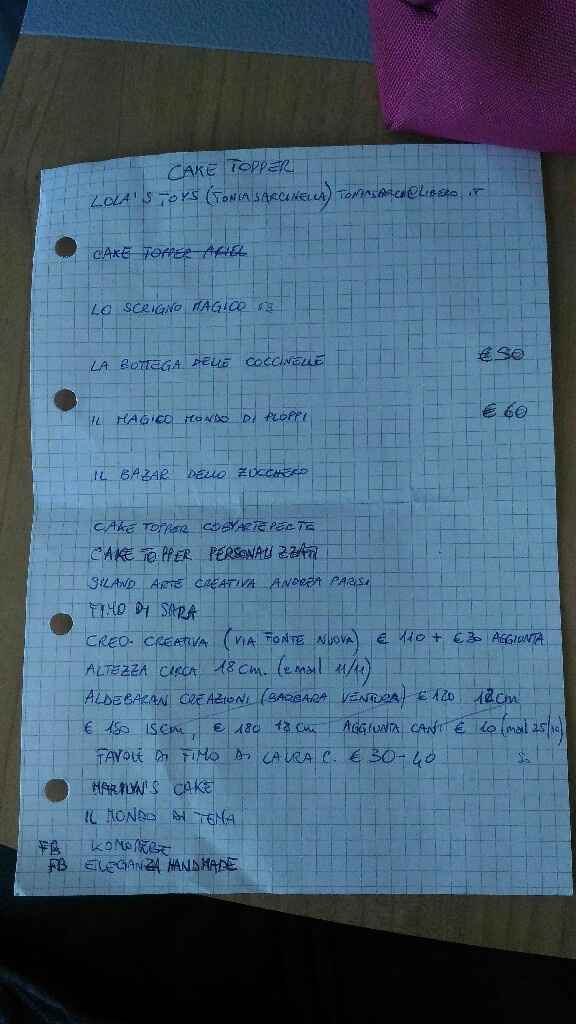 CAKE TOPPER
LOLA'S TOYS (TONIA SARCINELLA)
CAKE TOPPER ARIEL
LO SCRIGNO MAGICO
LA BOTTEGA DELLE COCCINELLE € 50
IL MAGICO MONDO DI PLOPPI € 60
IL BAZAR DELLO ZUCCHERO
CAKE TOPPER
CAKE TOPPER PERSONALIZZATI
ARTE CREATIVA ANDREA PARISI
FIMO DI SARA
CREO. CREATIVA (VIA FONTE NUOVA) € 110 + € 30 AGGIUNTA
ALTEZZA CIRCA 18 CM. (email 11/11)
ALDEBARAN CREAZIONI (BARBARA VENTURA) € 120 12 CM
€ 150 15 CM, € 180 18 CM AGGIUNTA CANI € 10 (mail 25/10)
FAVOLE DI FIMO DI LAURA C. € 30-40
MARILYN'S CAKE
IL MONDO DI TEMA
FB
FB ELEGANZA HANDMADE